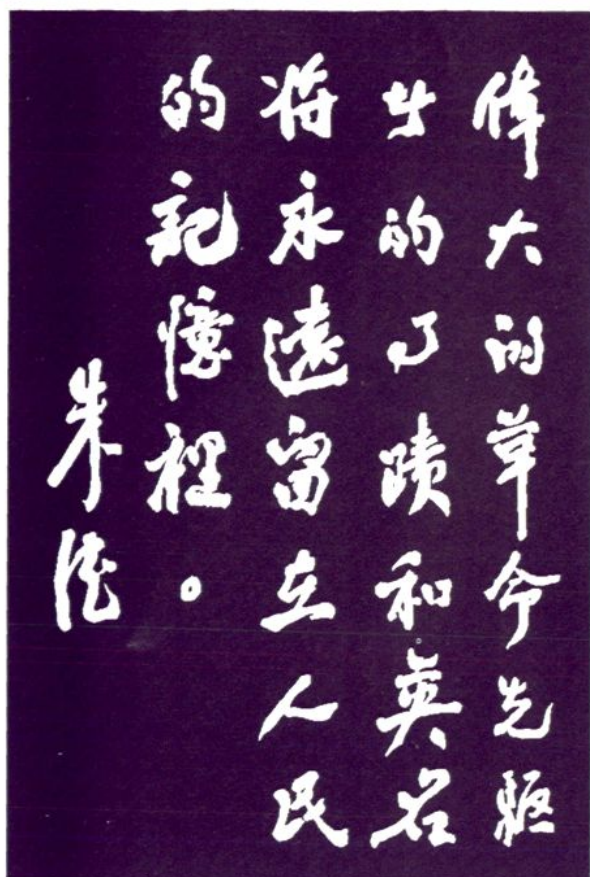 偉大的革命先駆
者的事蹟和英名
将永遠留在人民
的記憶裡。
朱德